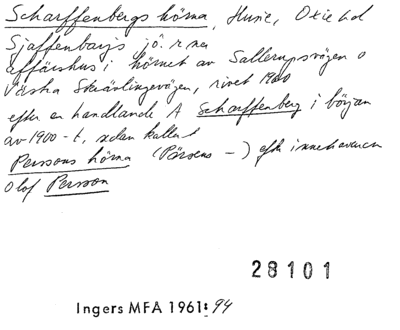 Scharffenbergs hörna, Husie, Oxie hd
Sjaffenbarjs jö. r na
affärshus i hörnet av Sallerupsvägen o
Västra Skrävlingevägen, rivet 1960
efter en handlande A Scharffenberg i början
av 1900-t, sedan kallat
Perssons hörna (Pärsens –) efter innehavaren
Olof Persson
28101
Ingers MFA 1961:94